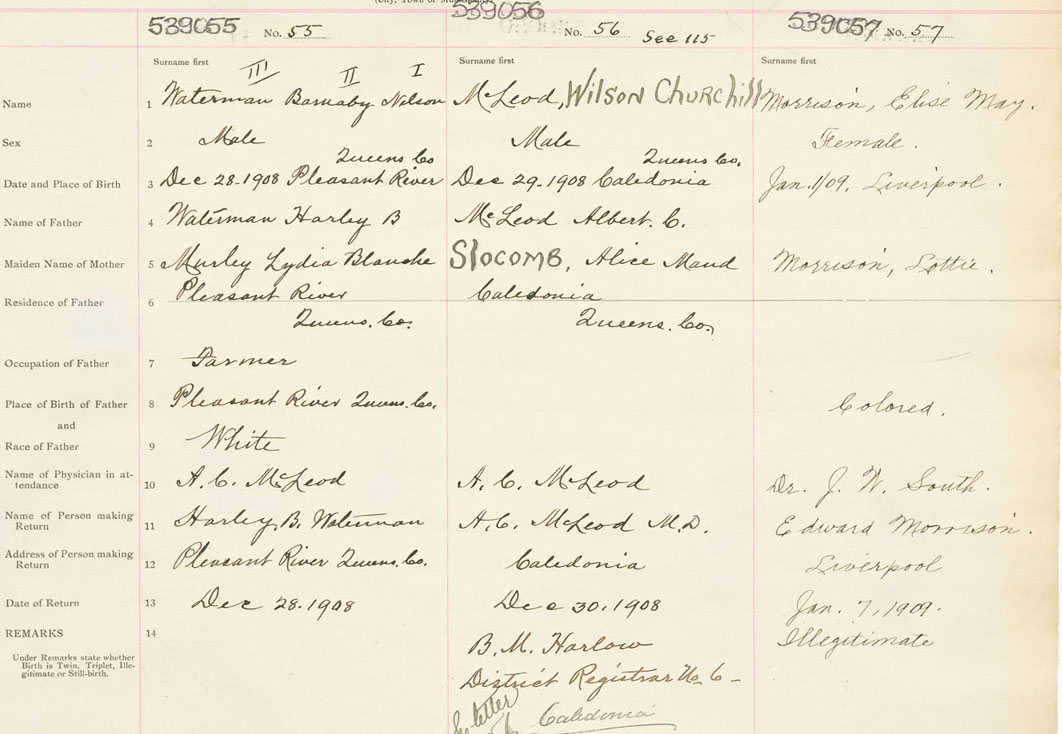 539055 No. 55
539056 No. 56 See 115
539057 No. 57
Surname first Surname first Surname first
III II I
Name 1 Waterman Barnaby Nelson McLeod, Wilson Churchill Morrison, Elise May.
Sex 2 Male Male Female.
Queens Co Queens Co.
Date and Place of Birth 3 Dec 28-1908 Pleasant River Dec 29-1908 Caledonia Jan. 1/09, Liverpool.
Name of Father 4 Waterman Harley B McLeod Albert. C.
Maiden Name of Mother 5 Murley Lydia Blanche Slocomb, Alice Maud Morrison, Lottie.
Residence of Father 6 Pleasant River Caledonia
Queens. Co. Queens. Co.
Occupation of Father 7 Farmer
Place of Birth of Father 8 Pleasant River Queens. Co. Colored.
and
Race of Father 9 White
Name of Physician in at-
tendance 10 A. C. McLeod A. C. McLeod Dr. J. W. South.
Name of Person making
Return 11 Harley, B. Waterman A. C. McLeod M.D. Edward Morrison.
Address of Person making
Return 12 Pleasant River Queens. Co. Caledonia Liverpool
Date of Return 13 Dec 28.1908 Dec 30.1908 Jan. 7, 1909.
REMARKS 14 B. M. Harlow Illegitimate
Under Remarks state whether
Birth is Twin, Triplet, Ille-
gitimate or Still-birth.
District Registrar No. 6-
letter
Caledonia